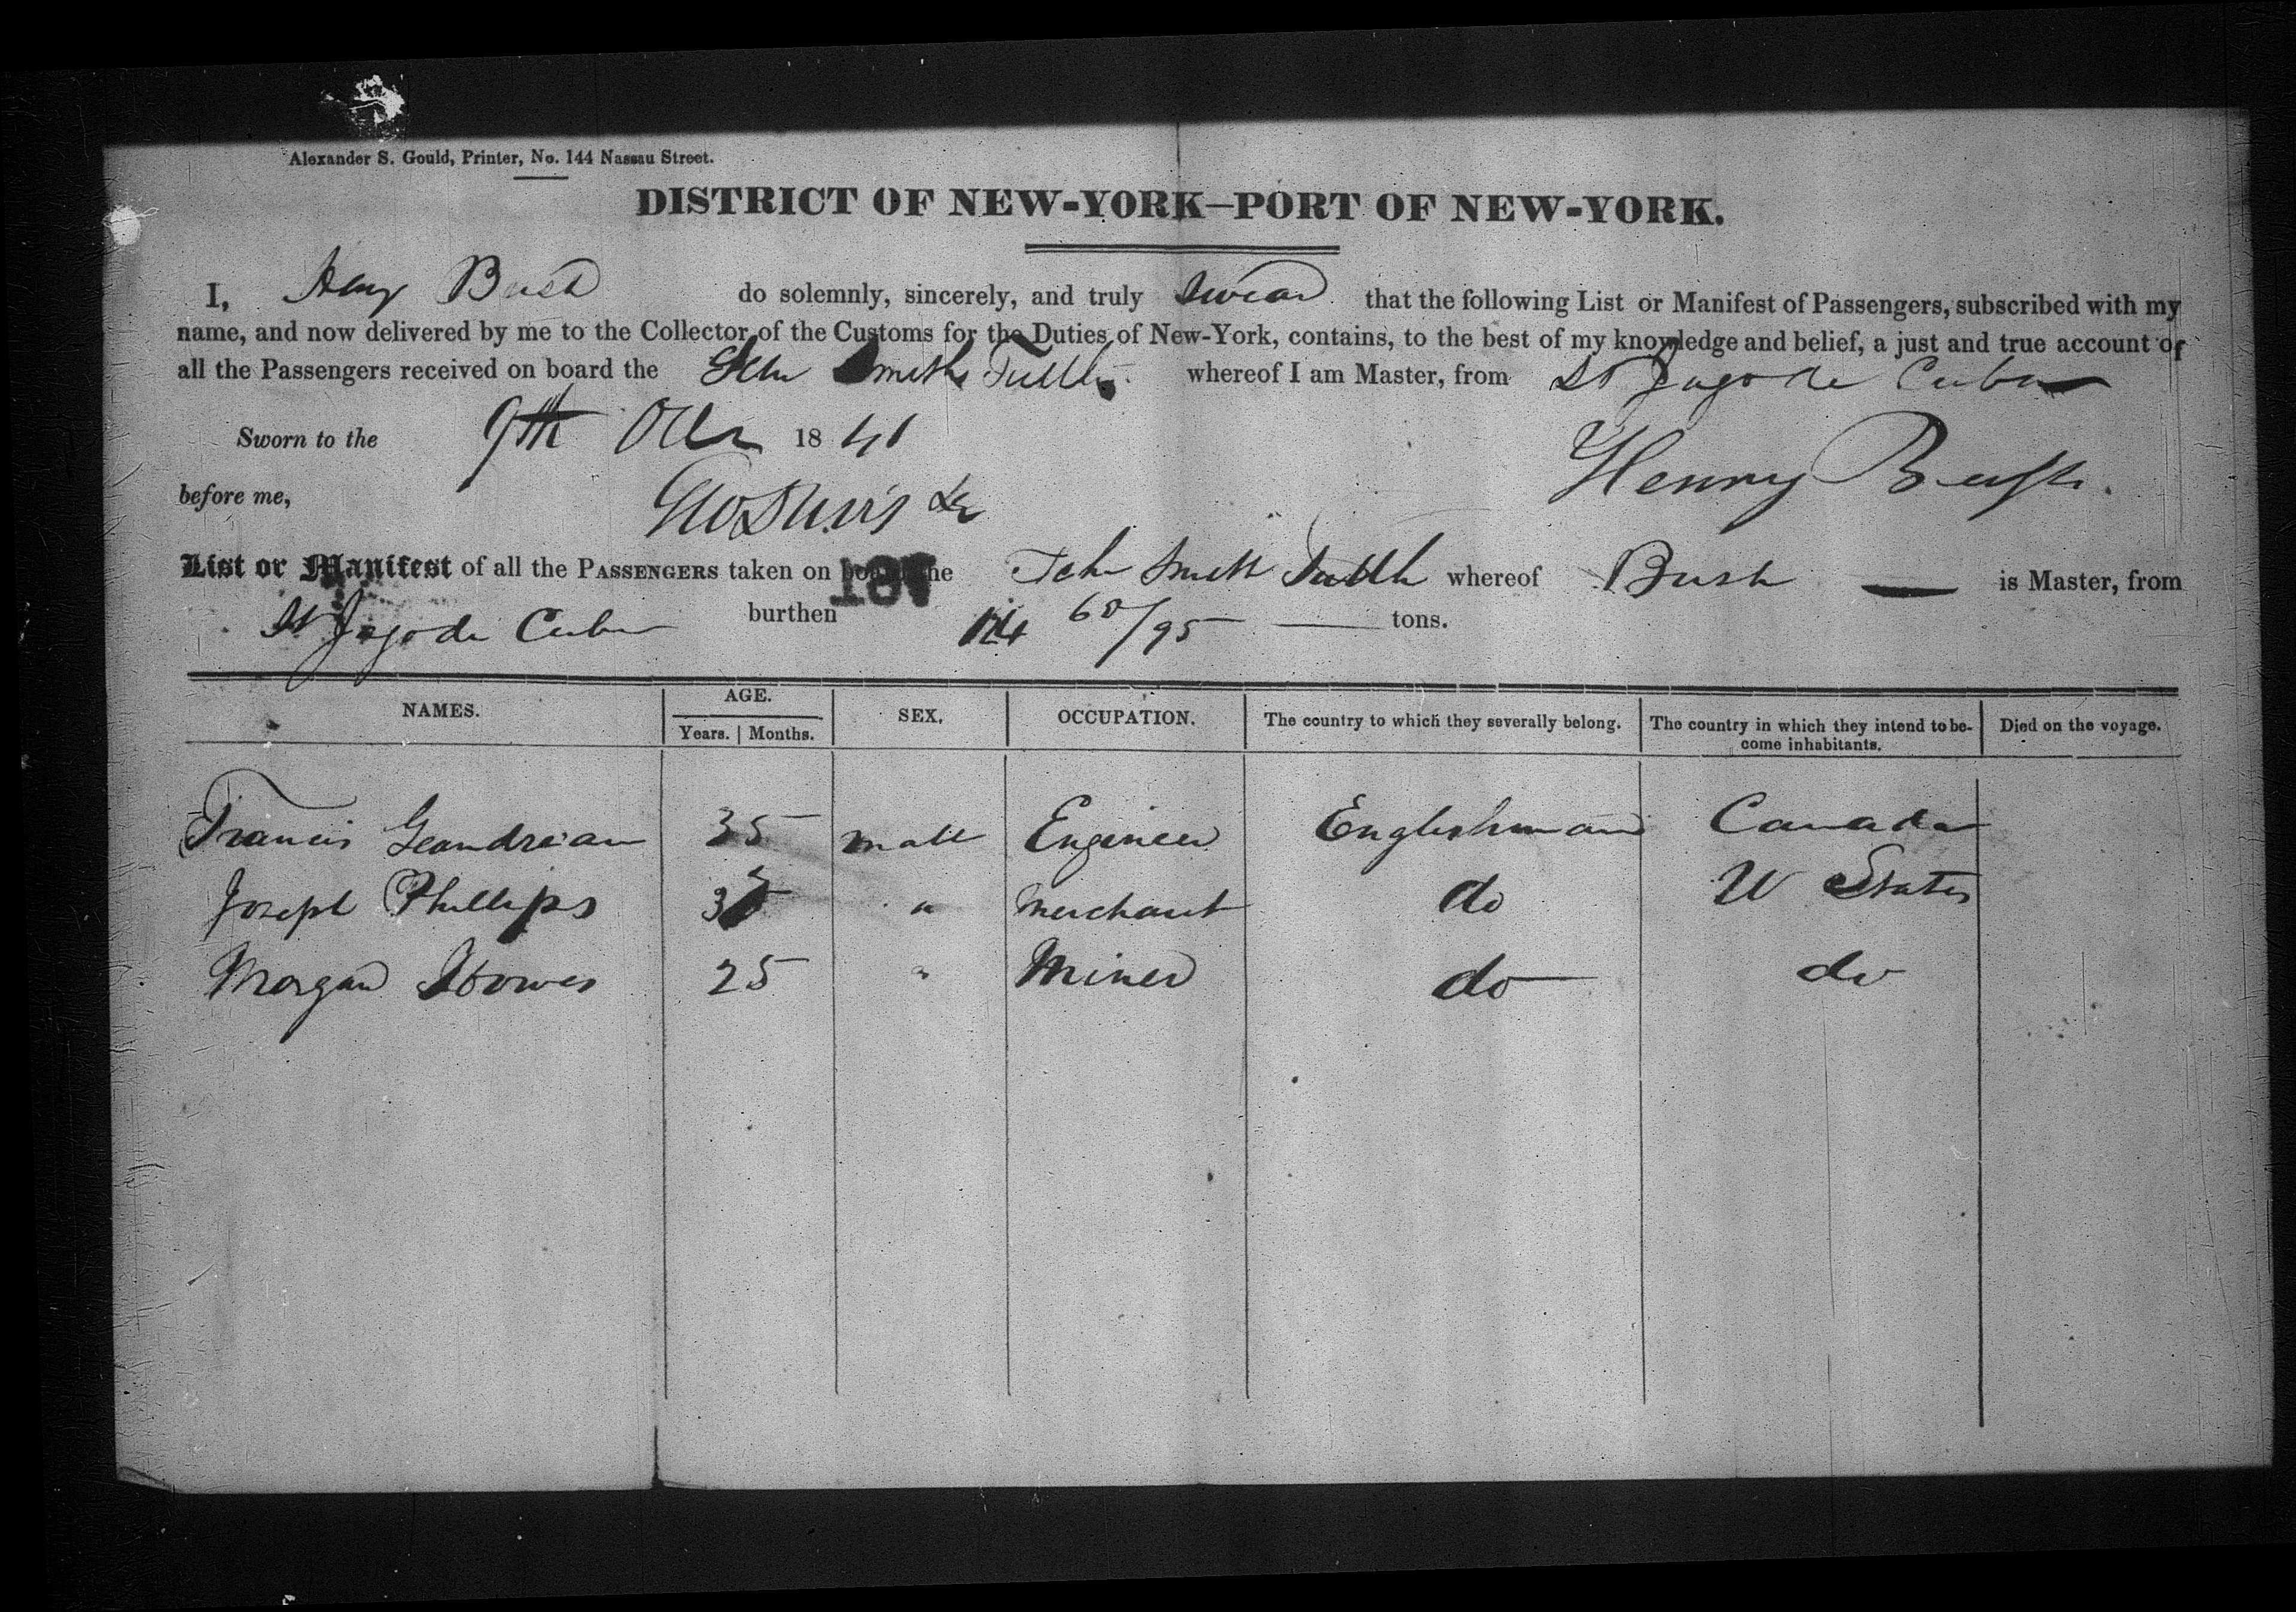 Alexander S. Gould, Printer, No. 144 Nassau Street.
DISTRICT OF NEW-YORK—PORT OF NEW-YORK.
I, Henry Bush do solemnly, sincerely, and truly swear that the following List or Manifest of Passengers, subscribed with my
name, and now delivered by me to the Collector of the Customs for the Duties of New-York, contains, to the best of my knowledge and belief, a just and true account of
all the Passengers received on board the John Smith Tuttle whereof I am Master, from St Jago de Cuba
Sworn to the 9th Octr 1841 Henry Bush.
before me,
List or Manifest of all the PASSENGERS taken on board the John Smith Tuttle whereof Bush is Master, from
St Jago de Cuba burthen 60/95 tons.
NAMES. AGE. SEX. OCCUPATION. The country to which they severally belong. The country in which they intend to be- Died on the voyage.
Years. | Months. come inhabitants.
Francis 35 male Engineer Englishman Canada
Joseph Phillips 35 " Merchant do U States
Morgan 25 " Miner do do